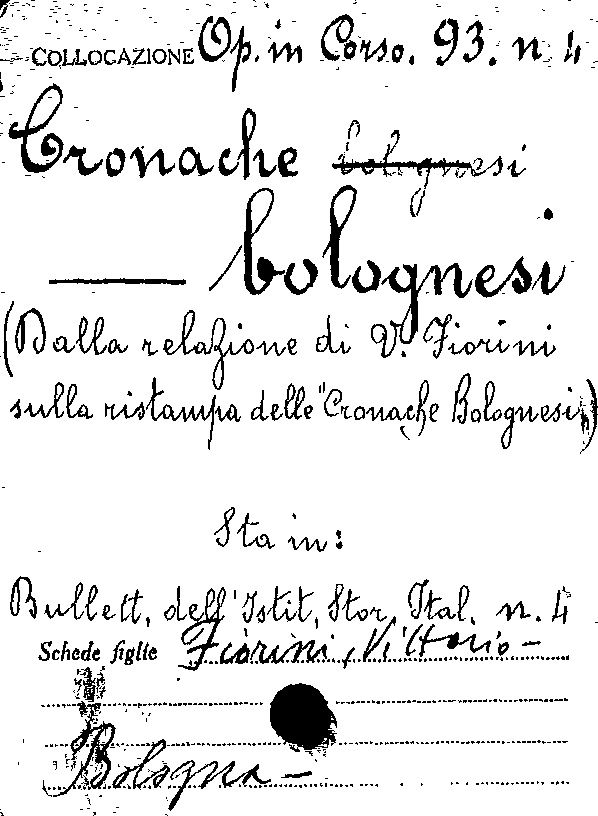 COLLOCAZIONE Op. in Corso. 93. n 4
Cronache bolognesi
— bolognesi
(Dalla relazione di V. Fiorini
sulla ristampa delle "Cronache Bolognesi„)
Sta in:
Bullett. dell'Istit. Stor. Ital. n. 4
Schede figlie Fiorini, Vittorio –
Bologna –